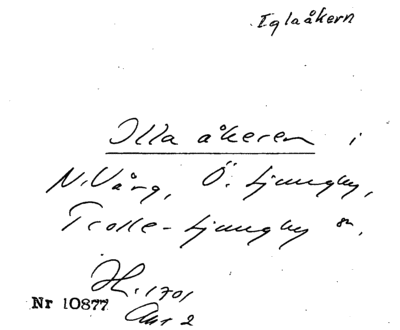 Iglaåkern
Illa åkeren i
N. Vång, Ö. Ljungby,
Trolle-Ljungby sn.
H. 1701
Nr 10877
2